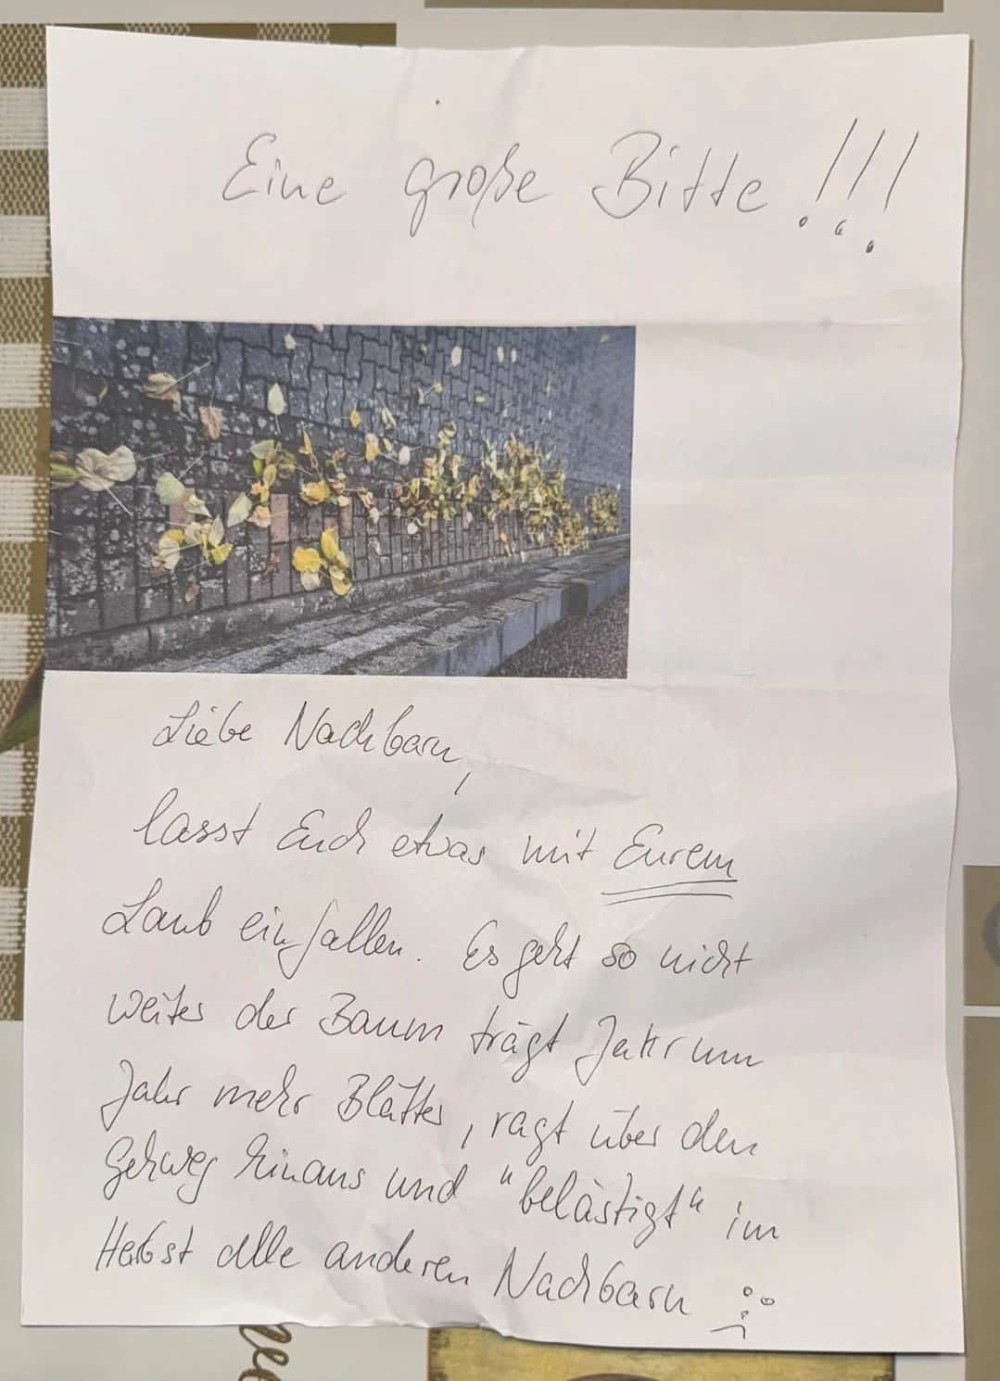 Eine große Bitte!!!
Liebe Nachbarn,
lasst Euch etwas mit Eurem
Laub einfallen. Es geht so nicht
weiter der Baum trägt Jahr um
Jahr mehr Blätter, ragt über den
Gehweg hinaus und "belästigt" im
Herbst alle anderen Nachbarn